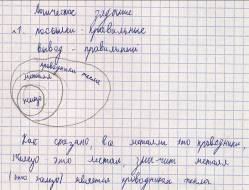 Логическое задание
№1. посылки - правильные
вывод - правильный
проводники тепла
металлы
Как сказано, все металлы это проводники.
это металл значит металл
является проводником тепла